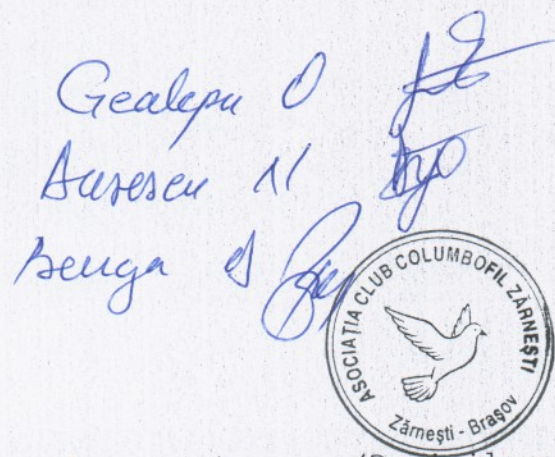 Gealapu O
Aursescu N
Benga
ASOCIAȚIA CLUB COLUMBOFIL ZĂRNEȘTI
Zărnești - Brașov